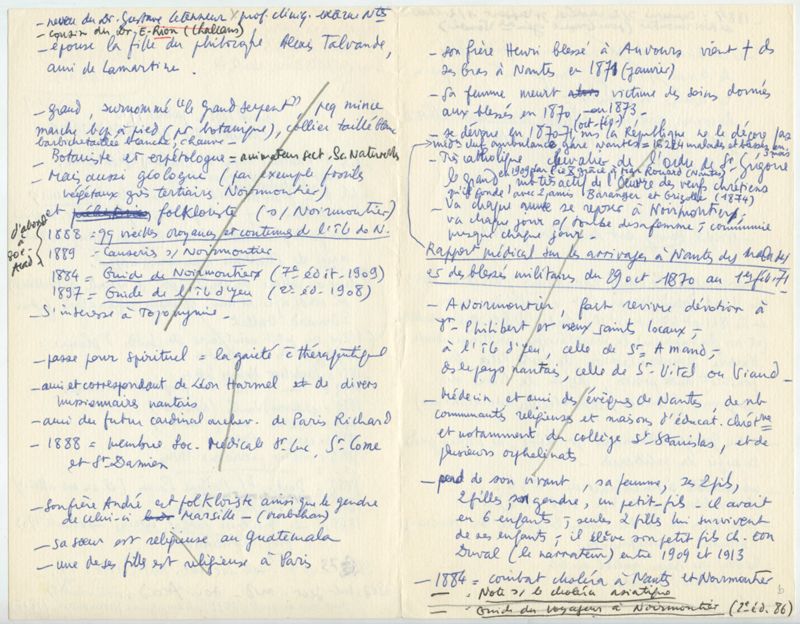 - neveu du Dr. Gustave Letenneur prof. clinig. externe Nts
- cousin du Dr E-Rion (Challans)
- épouse la fille du philosophe Alexis Talvande,
ami de Lamartine.
- grand, surnommé "le Grand Serpent", pcq mince
marche bcp à pied (pr botanique), collier taillé blanc
barbichetaillée blanche, chauve -
- Botaniste et erpétologue = animateur sect. Sc. Naturelles
- Mais aussi géologue (par exemple fossils
végétaux grès tertiaires Noirmoutier)
et folkloriste (s/ Noirmoutier)
d'abord
à
Soc.
Acad
1888 = 99 vieilles croyances et coutumes de l'île de N.
1889 = Causerie s/ Noirmoutier
1884 = Guide de Noirmoutier (7e édit - 1909)
1897 - Guide de l'île d'Yeu (2e éd - 1908)
- S'intéresse à Toponymie -
- passe pour spirituel = la gaieté c thérapeutique
- ami et correspondant de Léon Harmel et de divers
missionnaires nantais
- ami du futur cardinal archev. de Paris Richard
- 1888 = membre Soc. Medical St Luc, St Come
et St Damien
- son frère André est folkloriste ainsi que le gendre
de celui-ci Marsille - (Morbihan)
- sa sœur est religieuse au Guatemala
- une de ses filles est religieuse à Paris
- son frère Henri blessé à Auvours vient + ds
ses bras à Nantes en 1871 (janvier)
- Sa femme meurt victime des soins donnés
aux blessés en 1870 - en 1873 -
- se dévoue en 1870-71 (oct-fév) mais la République ne le décore pas
méd. chef ambulance gare Nantes = 16284 malades et blessés en 3 mois
- Très catholique chevalier de l'ordre de St Grégoire
le Grand en 1909 par Pie X grâce à Mgr Rouard (Nantes)
mbre actif de l'Œuvre des vieux chrétiens
qu'il fonde avec 2 amis Baranger et (1874)
- Va chaque année se reposer à Noirmoutier,
va chaque jour s/ tombe de sa femme ; communie
presque chaque jour -
Rapport médical sur les arrivages à Nantes des malades
et des blessés militaires du 29 oct 1870 au 19 fév. 71
- A Noirmoutier, fait revivre dévotion à
St. Philibert et vieux saints locaux,-
à l'île d'Yeu, celle de St Amand,-
ds le pays nantais, celle de St Vital ou Viaud -
- Médecin et ami des évêques de Nantes, de nb
communautés religieuses et maisons d'éducat. chrétne
et notamment du collège St Stanislas, et de
plusieurs orphelinats
- perd de son vivant, sa femme, ses 2 fils,
2 filles, son gendre, un petit-fils - il avait
en 6 enfants ; seules 2 filles lui survivent
de ses enfants ; il élève son petit fils ch. ton
Duval (le narrateur) entre 1909 et 1913
- 1884 = combat choléra à Nants et Noirmoutier
- Note s/ le choléra asiatique
= Guide du voyageur à Noirmoutier (2e éd. 86)
b